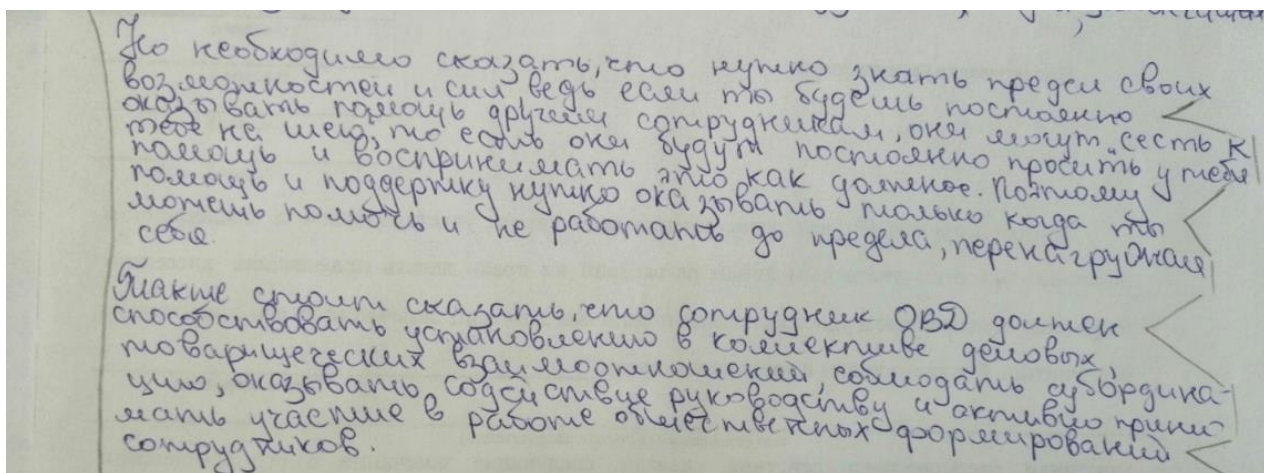 Но необходимо сказать, что нужно знать предел своих
возможностей и сил ведь если ты будешь постоянно
оказывать помощь другим сотрудникам, они могут "сесть к
тебе на шею", то есть они будут постоянно просить у тебя
помощь и воспринимать это как должное. Поэтому
помощь и поддержку нужно оказывать только когда ты
можешь помочь и не работать до предела, перенагружая
себя.
Также стоит сказать, что сотрудник ОВД должен
способствовать установлению в коллективе деловых,
товарищеских взаимоотношений, соблюдать субордина-
цию, оказывать содействие руководству и активно прини-
мать участие в работе общественных формирований
сотрудников.